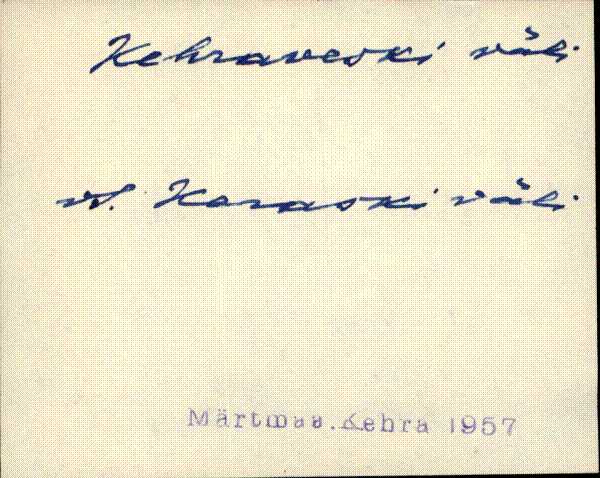 Kehraveski väli
vt. Koraski väli
Märtmaa.Kehra 1957